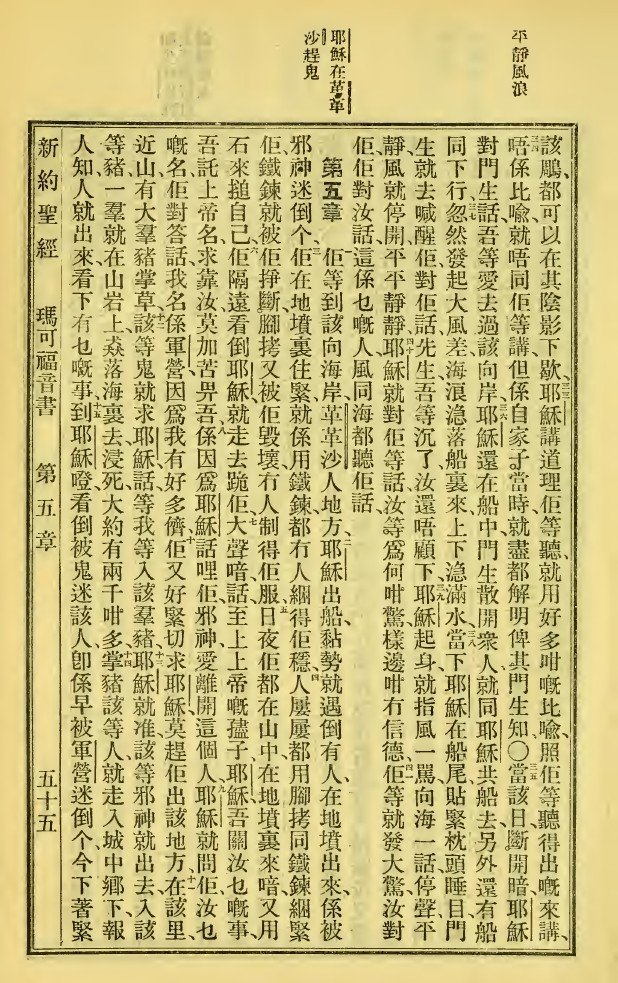 平靜風浪
耶穌在革革
沙趕鬼
該鵰都可以在其陰影下歇、耶穌講道理佢等聽就用好多咁嘅比喩、照佢等聽得出嘅來講、
唔係比喩就唔同佢等講但係自家子當時就盡都解明俾其門生知〇當該日斷開暗耶穌
對門生話吾等愛去過該向岸耶穌還在船中門生散開衆人就同耶穌共船去另外還有船
同下行忽然發起大風差海浪急落船裏來上下急滿水當下耶穌在船尾貼緊枕頭睡目門
生就去喊醒佢對佢話先生吾等沉了汝還唔顧下耶穌起身就指風一駡向海一話停聲平
靜風就停開平平靜靜耶穌就對佢等話汝等爲何咁驚樣邊咁冇信德佢等就發大驚汝對
佢佢對汝話這係乜嘅人風同海都聽佢話
第五章 佢等到該向海岸革革沙人地方耶穌出船黏勢就遇倒有人在地墳出來係被
邪神迷倒个佢在地墳裏住緊就係用鐵鍊都冇人綑得佢穩人屢屢都用腳拷同鐵鍊綑緊
佢鐵鍊就被佢掙斷腳拷又被佢毀壞冇人制得佢服日夜佢都在山中在地墳裏來喑又用
石來搥自己佢隔遠看倒耶穌就走去跪佢大聲喑話至上上帝嘅孻子耶穌吾關汝乜嘅事
吾託上帝名求靠汝莫加苦畀吾係因爲耶穌話哩佢邪神愛離開這個人耶穌就問佢汝乜
嘅名佢對答話我名係軍營因爲我有好多儕佢又好緊切求耶穌莫趕佢出該地方在該里
近山有大羣豬掌草該等鬼就求耶穌話等我等入該羣豬耶穌就准該等邪神就出去入該
等豬一羣就在山岩上猋落海裏去浸死大約有兩千咁多掌豬該等人就走入城中鄉下報
人知人就出來看下有乜嘅事到耶穌嶝看倒被鬼迷該人卽係早被軍營迷倒个今下著緊
新約聖經 瑪可福音書 第五章 五十五